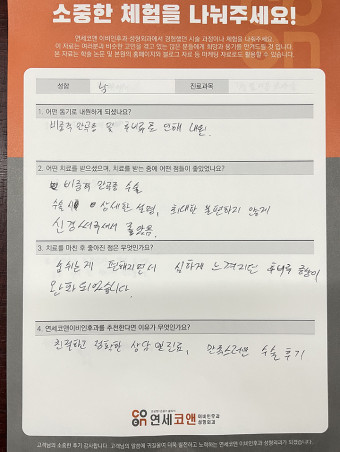 소중한 체험을 나눠주세요!
연세코앤 이비인후과·성형외과에서 경험했던 시술 과정이나 체험을 나눠주세요.
이 자료는 여러분과 비슷한 고민을 갖고 있는 많은 분들에게 희망과 용기를 안겨드릴 것 입니다.
본 자료는 학술 논문 및 본원의 홈페이지와 블로그 자료 등 마케팅 자료로도 활용될 수 있습니다.
성함
진료과목
1. 어떤 동기로 내원하게 되셨나요?
비중격 만곡증 및 후비루로 인해 내원.
2. 어떤 치료를 받으셨으며, 치료를 받는 중에 어떤 점들이 좋았었나요?
비중격 만곡증 수술
수술시 상세한 설명, 최대한 불편하지 않게
신경써주셔서 좋았음.
3. 치료를 마친 후 좋아진 점은 무엇인가요?
숨쉬는게 편해지면서 심하게 느껴지던 후비루 증상이
완화되었습니다.
4. 연세코앤이비인후과를 추천한다면 이유가 무엇인가요?
친절하고 정확한 상담 및 진료, 만족스러운 수술 후기
연세코앤 이비인후과 성형외과
고객님의 소중한 후기 감사합니다. 고객님의 말씀에 귀기울여 더욱 발전하고 노력하는 연세코앤 이비인후과·성형외과가 되겠습니다.